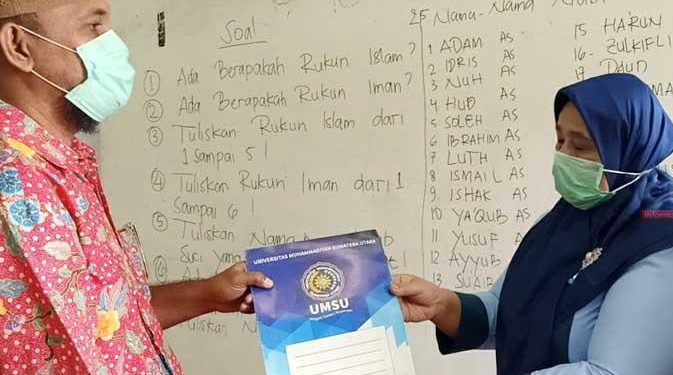 Soal
1 Ada Berapakah Rukun Islam?
2 Ada Berapakah Rukun Iman?
3 Tuliskan Rukun Islam dari
1 Sampai 5!
4 Tuliskan Rukun Iman dari 1
Sampai 6!
5 Tuliskan Nama
Suci yang
6
25 Nama-Nama
1 ADAM AS
2 IDRIS AS
3 NUH AS
4 HUD AS
5 SOLEH AS
6 IBRAHIM AS
7 LUTH AS
8 ISMAIL AS
9 ISHAK AS
10 YA'QUB AS
11 YUSUF AS
12 AYYUB
13 SUAIB
15 HARUN
16- ZULKIFLI
17 DAUD
UNIVERSITAS MUHAMMADIYAH SUMATERA UTARA
UMSU
Unggul | Cerdas | Terpercaya
Inform